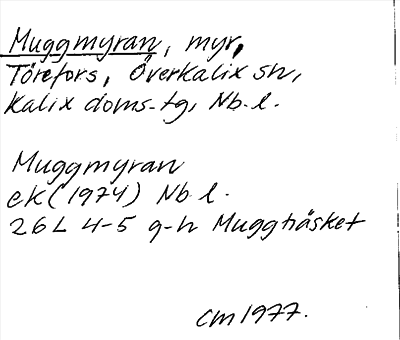 Muggmyran, myr,
Törefors, Överkalix sn,
Kalix doms.tg, Nb.l.
Muggmyran
ek (1974) Nb l.
26L 4-5 g-h Muggträsket
CM 1977.